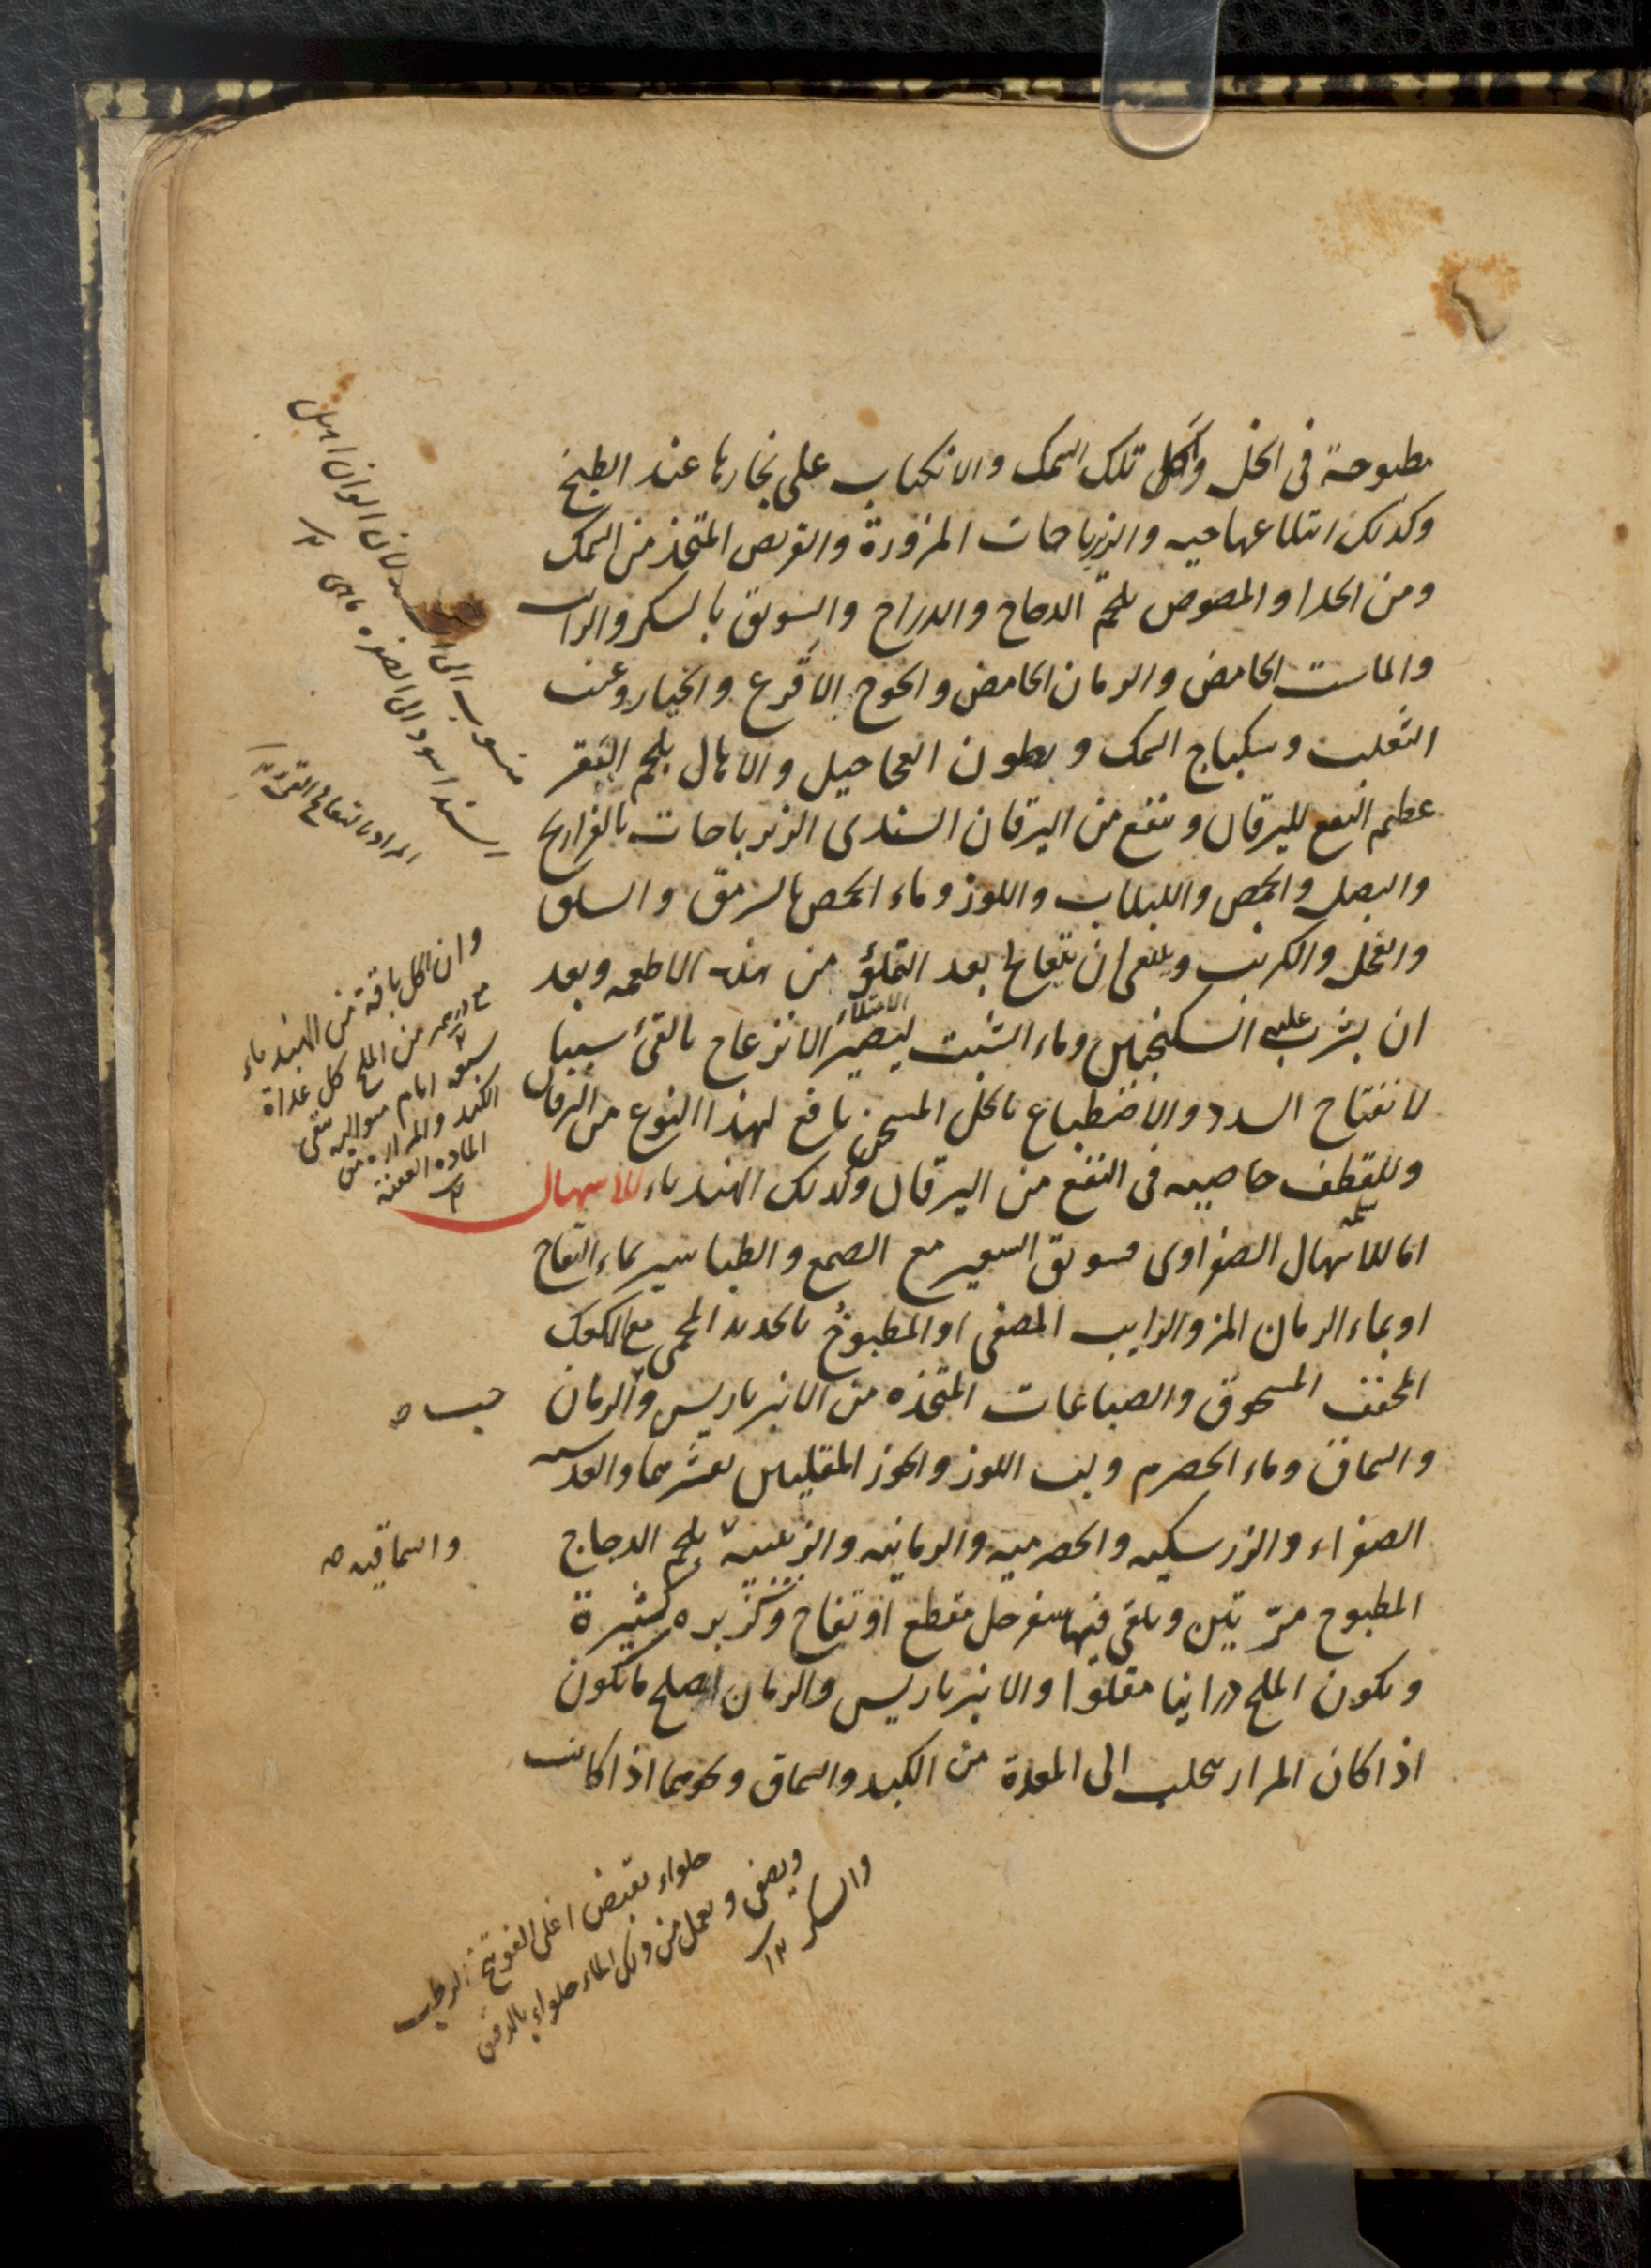 مطبوخة فى الخل وأكل تلك السمك والانكباب على بخارها عند الطبخ
وكذلك ابتلاعها حيه والزيرباجات المزورة والقريص المتخذ من السمك
ومن الجدا والمصوص بلحم الدجاج والدراج والسويق بالسكر والرائب
والماست الحامض والرمان الحامض والخوخ الاقرع والخيار وعنب
الثعلب وسكباج السمك وبطون العجاجيل والاهال بلحم البقر
عظيم النفع لليرقان وينفع من اليرقان السندى الزيرباجات بالفراريج
والبصل والحمص واللبلاب واللوز وماء الحمص بالسرمق والسلق
والفجل والكرنب وينبغى ان يتعالج بعد التملؤ من هذه الاطعمه وبعد
ان يشرب عليه السكنجبين وماء الشبت ليصير الانزعاج بالقئ سببا
الامتلاء
لانفتاح السدد والاضطباع بالخل المسخن نافع لهذا النوع من اليرقان
وللقطف خاصيه فى النفع من اليرقان وكذلك الهندباء للاسهال
اما للاسهال الصفراوى فسويق الشعير مع الصمغ والطباشير بماء التفاح
او بماء الرمان المز والرايب المصفى او المطبوخ بالحديد المحمى مع الكعك
المجفف المسحوق والصباغات المتخذه من الانبرباريس والرمان
والسماق وماء الحصرم ولب اللوز والجوز المقليين بقشرهما والعدسيه
الصفراء والزرشكيه والحصرميه والرمانيه والزبيبية بلحم الدجاج
المطبوخ مرتين ويلقى فيها سفرجل مقطع او تفاح وكزبره كثيرة
ويكون الملح درانيا مقلوا والانبرباريس والرمان اصلح ما تكون
اذا كان المرار يتحلب الى المعدة من الكبد والسماق ونحوهما اذا كانت
المراد بالتعالج القئ
وان اكل باقة من الهندباء
مع درهم من الملح كل غداة
سبعه ايام متواليه نقى
الكبد والمراره من
الماده العفنة
حب صه
والسماقيه صه
حلواء يقبض اغلى الفوتنج الرطب
ويصفى ويعمل من ذلك الماء حلواء بالدقيق
والسكر ١٢